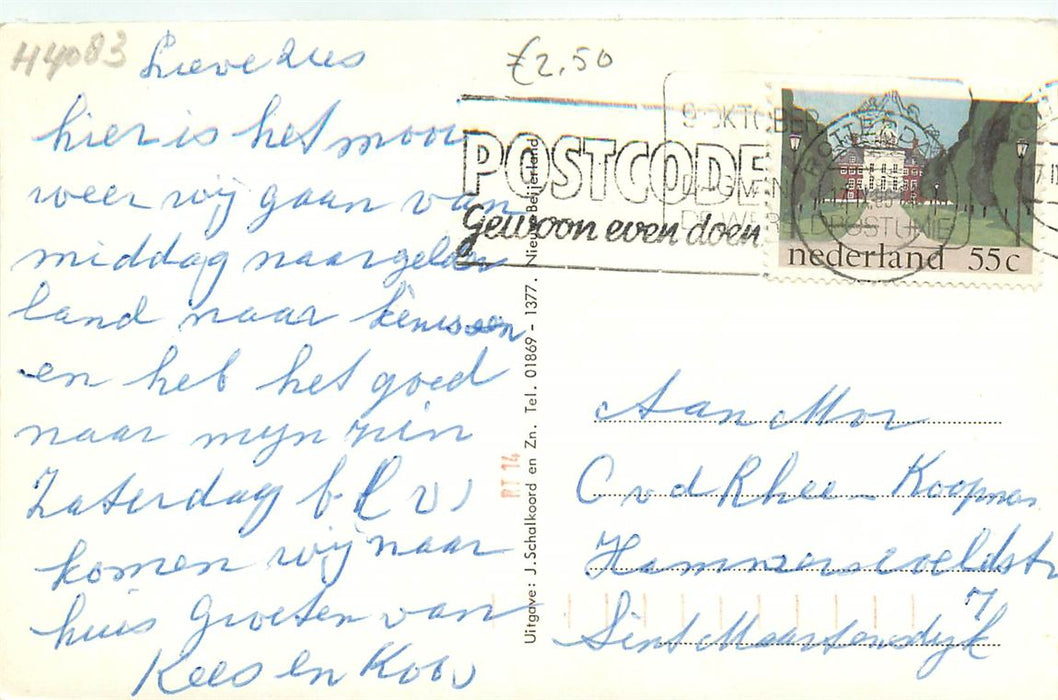 H4083
Lieve Zus
hier is het mooi
weer wij gaan van
middag naar gelder
land naar
en heb het goed
naar mijn zin
Zaterdag
komen wij naar
huis Groeten van
Kees en
€2,50
POSTCODE
Gewoon even doen
9 OKTOBER
ROTTERDAM
nederland 55c
Uitgave: J. Schalkoord en Zn. Tel. 01869 - 1377. Nieuw-Beijerland
RT 14
Aan Mvr
C v d Rhee - Koopman
7
Sint Maartensdijk